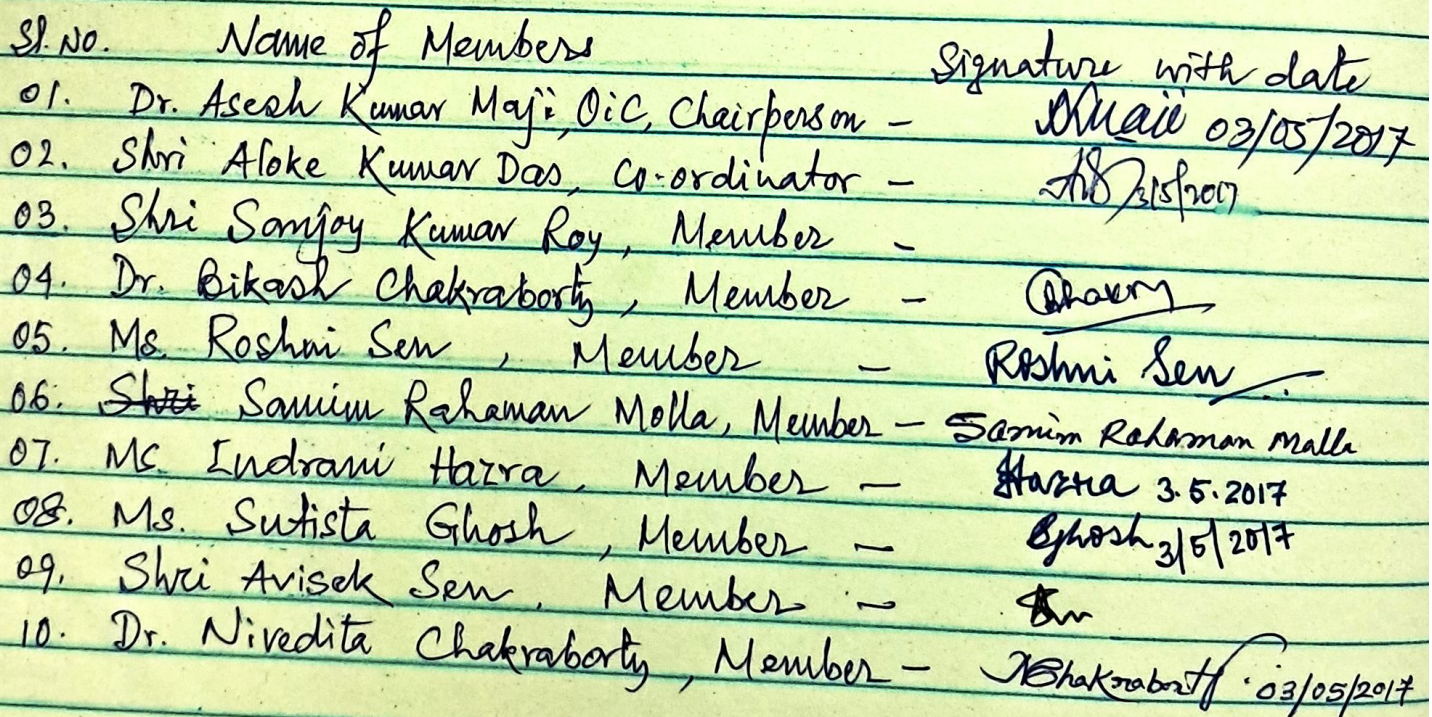 Sl. No. Name of Members Signature with date
01. Dr. Asesh Kumar Maji, OiC, Chairperson - 03/05/2017
02. Shri Aloke Kumar Das, Co-ordinator - 3/5/2017
03. Shri Sanjoy Kumar Roy, Member -
04. Dr. Bikash Chakraborty, Member -
05. Ms. Roshni Sen, Member - Roshni Sen
06. Shri Samim Rahaman Molla, Member - Samim Rahaman Molla
07. Ms. Indrani Hazra, Member - Hazra 3.5.2017
08. Ms. Sutista Ghosh, Member - Ghosh 3/5/2017
09. Shri Avisek Sen, Member -
10. Dr. Nivedita Chakraborty, Member - NChakraborty 03/05/2017